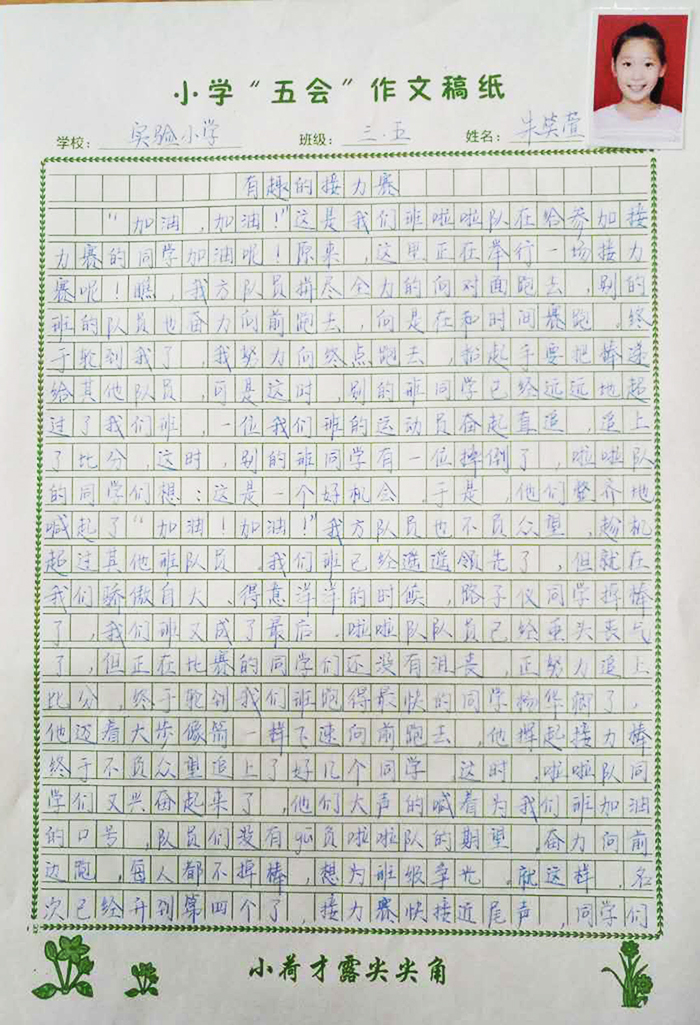 小学“五会”作文稿纸
学校： 实验小学 班级： 三.五 姓名： 朱笑萱
有趣的接力赛
“加油，加油！”这是我们班啦啦队在给参加接
力赛的同学加油呢！原来，这里正在举行一场接力
赛呢！瞧，我方队员拼尽全力的向对面跑去，别的
班的队员也奋力向前跑去，向是在和时间赛跑。终
于轮到我了，我努力向终点跑去，抬起手要把棒递
给其他队员，可是这时，别的班同学已经远远地超
过了我们班，一位我们班的运动员奋起直追，追上
了比分，这时，别的班同学有一位摔倒了，啦啦队
的同学们想：这是一个好机会。于是，他们整齐地
喊起了“加油！加油！”我方队员也不负众望，趁机
超过其他班队员。我们班已经遥遥领先了，但就在
我们骄傲自大、得意洋洋的时候，路子仪同学掉棒
了，我们班又成了最后。啦啦队队员已经垂头丧气
了，但正在比赛的同学们还没有沮丧，正努力追上
比分，终于轮到我们班跑得最快的同学杨华卿了，
他迈着大步像箭一样飞速向前跑去，他挥起接力棒
终于不负众望追上了好几个同学。这时，啦啦队同
学们又兴奋起来了，他们大声的喊着为我们班加油
的口号，队员们没有gū负啦啦队的期望，奋力向前
边跑，每人都不掉棒，想为班级争光。就这样，名
次已经升到第四个了，接力赛快接近尾声，同学们
小荷才露尖尖角